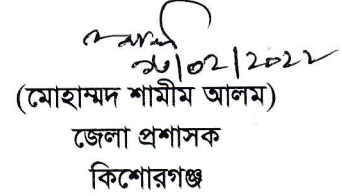 ১৬/০২/২০২২
(মোহাম্মদ শামীম আলম)
জেলা প্রশাসক
কিশোরগঞ্জ